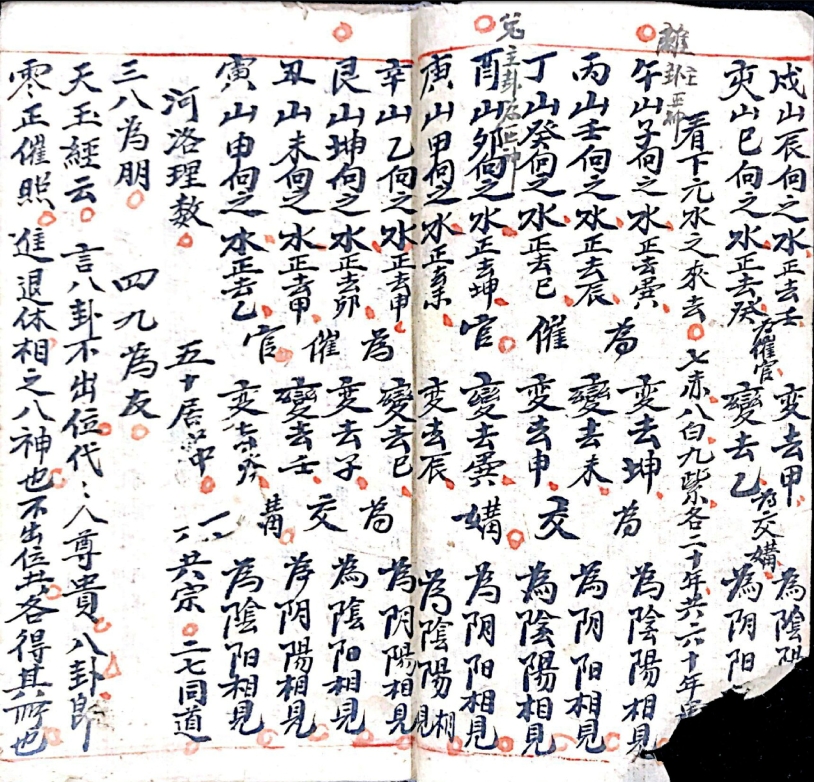 戍山辰向之水正去壬 变去甲 為陰阳
亥山巳向之水正去癸為催官 變去乙為交媾 為阴阳
看下元水之來去 七赤八白九紫各二十年共六十年
離卦主
午山子向之水正去巽 变去坤 為陰陽相見
丙山壬向之水正去辰 為 變去未 為 為阴阳相見
丁山癸向之水正去巳 催 变去申 交 為陰陽相見
兌主卦
酉山卯向之水正去坤 官 變去巽 媾 為阴阳相見
庚山甲向之水正去未 变去辰 為陰陽相見
辛山乙向之水正去申 為 變去巳 為 為阴陽相見
艮山坤向之水正去卯 催 变去子 交 為陰阳相見
丑山未向之水正去甲 官 變去壬 媾 為阴陽相見
寅山申向之水正去乙 变去癸 為陰阳相見
河洛理数 五十居中 一六共宗 二七同道
三八為朋 四九為友
天玉經云 言八卦不出位代〻人尊貴 八卦即
零正催照 進退休相之八神也不出位共各得其所也